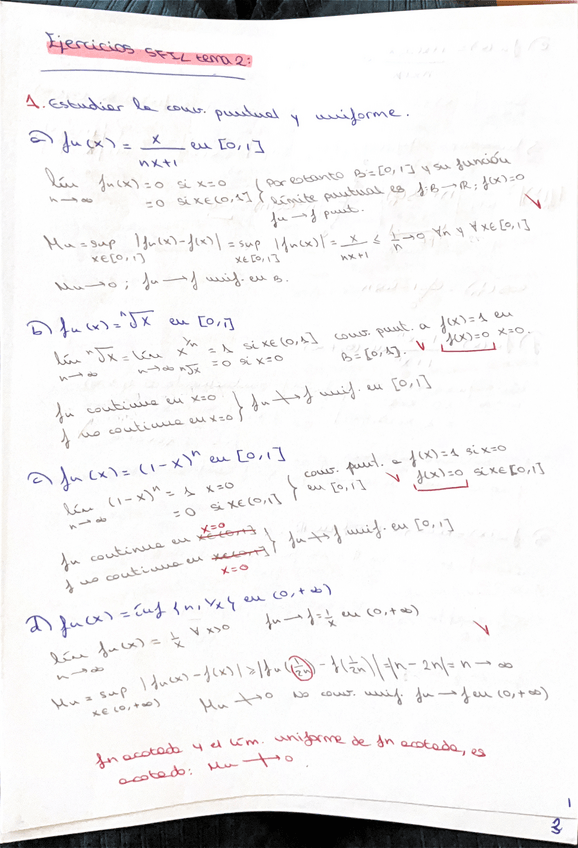 Ejercicios SFIL tema 2:
1. Estudiar la conv. puntual y uniforme.
a) fn(x) = x/(nx+1) en [0,1]
lím n→∞ fn(x) = 0 si x=0
= 0 si x∈(0,1]
} Por tanto B=[0,1] y su función límite puntual es f:B→R; f(x)=0
fn→f punt. ✓
Mn = sup x∈[0,1] |fn(x)-f(x)| = sup x∈[0,1] |fn(x)| = x/(nx+1) ≤ 1/n → 0 ∀n y ∀x∈[0,1]
Mn→0; fn→f unif. en B.
b) fn(x) = ⁿ√x en [0,1]
lím n→∞ ⁿ√x = lím n→∞ x^(1/n) = 1 si x∈(0,1]
ⁿ√x = 0 si x=0
conv. punt. a f(x)=1 en
B=[0,1]. ✓ f(x)=0 x=0.
fn continua en x=0
f no continua en x=0
} fn↛f unif. en [0,1]
c) fn(x) = (1-x)ⁿ en [0,1]
lím n→∞ (1-x)ⁿ = 1 x=0
= 0 si x∈(0,1]
} conv. punt. a f(x)=1 si x=0
en [0,1] ✓ f(x)=0 si x∈[0,1]
x=0
fn continua en x∈(0,1]
f no continua en x∈(0,1]
x=0
} fn↛f unif. en [0,1]
d) fn(x) = inf {n, 1/x} en (0,+∞)
lím n→∞ fn(x) = 1/x ∀x>0 fn→f=1/x en (0,+∞) ✓
Mn = sup x∈(0,+∞) |fn(x)-f(x)| ≥ |fn(1/2n) - f(1/2n)| = |n-2n| = n→∞
Mn↛0 No conv. unif. fn→f en (0,+∞)
fn acotada y el lím. uniforme de fn acotada, es
acotado: Mn↛0.
1
3